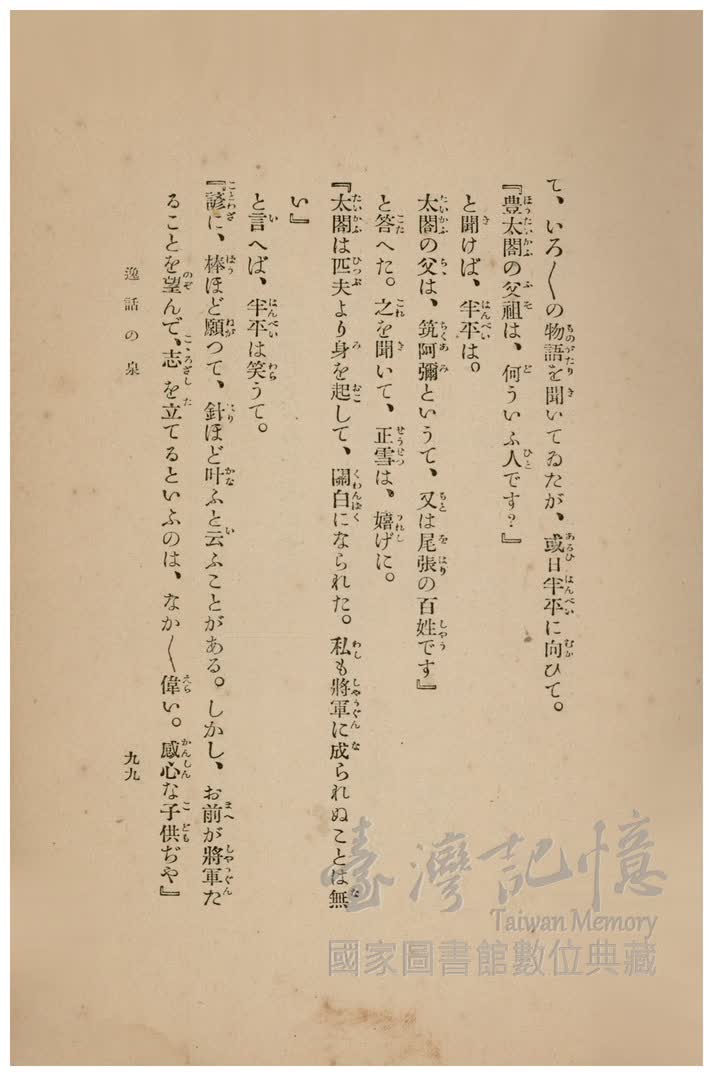 て、いろ〳〵の物語を聞いてゐたが、或日半平に向ひて。
『豊太閤の父祖は、何ういふ人です？』
と聞けば、半平は。
太閤の父は、筑阿彌というて、又は尾張の百姓です』
と答へた。之を聞いて、正雪は、嬉げに。
『太閤は匹夫より身を起して、關白になられた。私も將軍に成られぬことは無
い』
と言へば、半平は笑うて。
『諺に、棒ほど願つて、針ほど叶ふと云ふことがある。しかし、お前が將軍た
ることを望んで、志を立てるといふのは、なか〳〵偉い。感心な子供ぢや』
逸話の泉
九九
臺灣記憶
Taiwan Memory
國家圖書館數位典藏